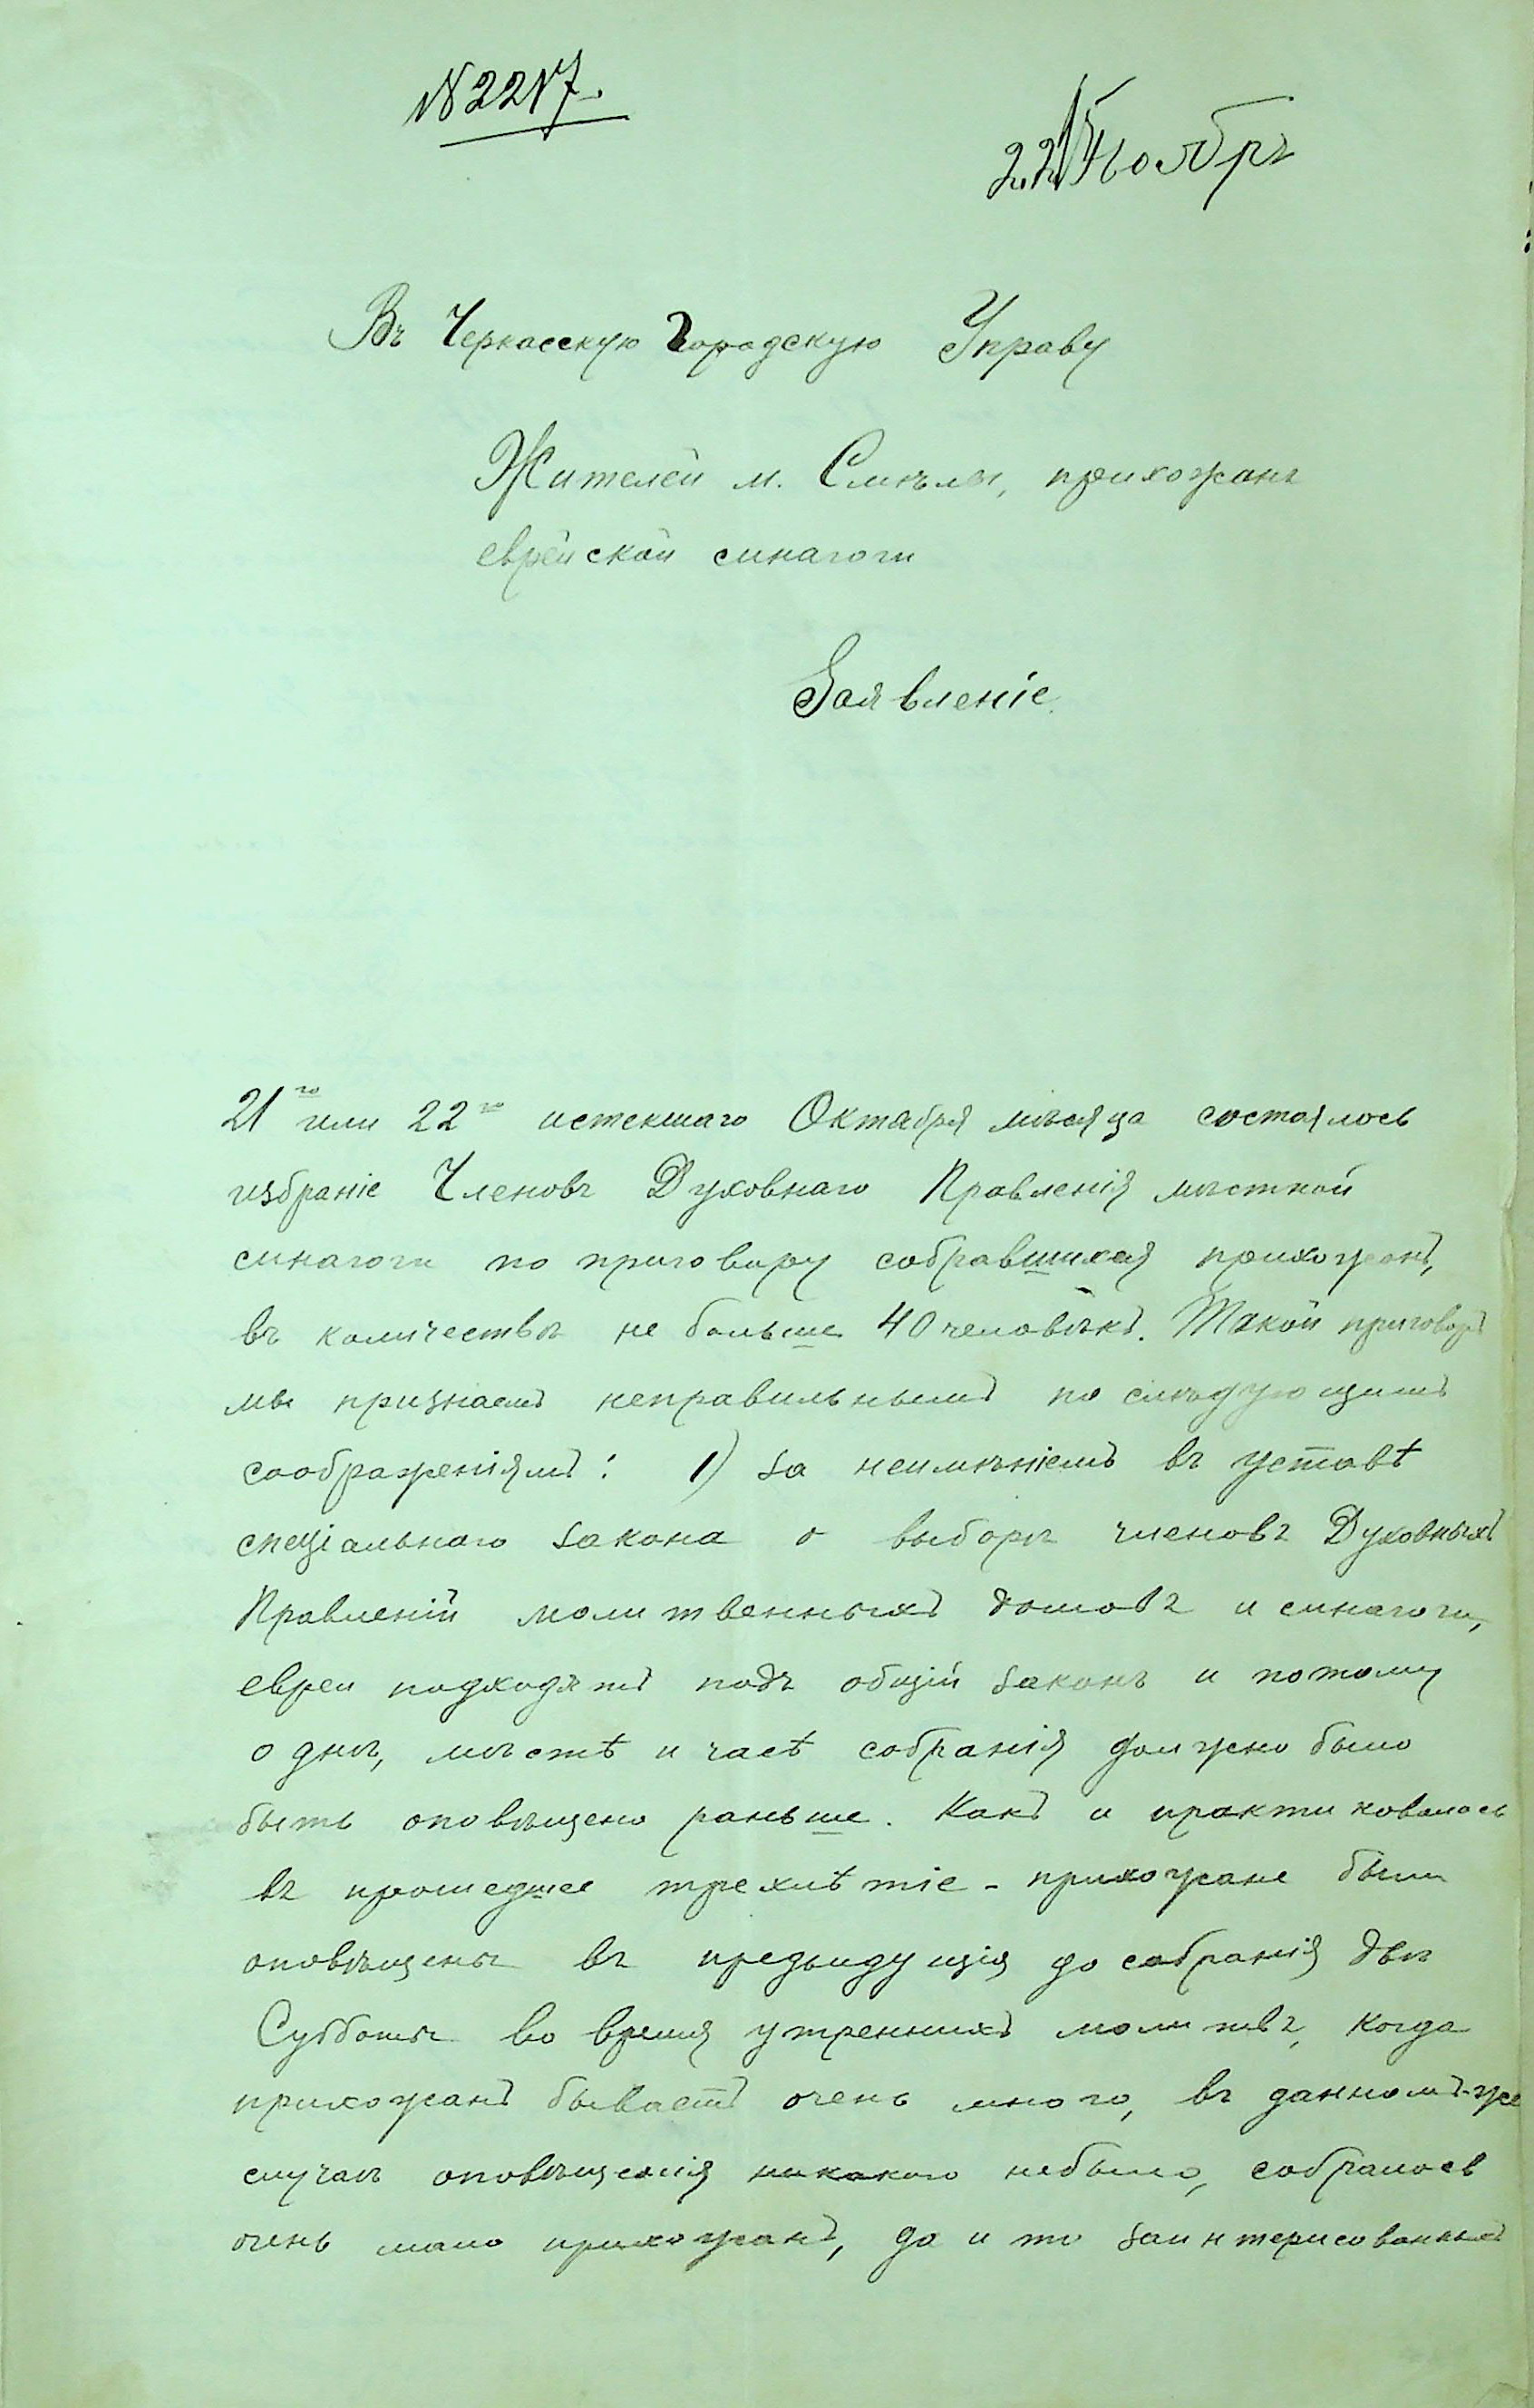 № 2217.
22 Ноябрь
Въ Черкасскую Городскую Управу
Жителей м. Смѣлы, прихожанъ
еврейской синагоги
Заявленіе.
21го или 22го истекшаго Октября мѣсяца состоялось
избраніе Членовъ Духовнаго Правленія мѣстной
синагоги по приговору собравшихся прихожанъ,
въ количествѣ не больше 40 человѣкъ. Такой приговоръ
мы признаемъ неправильнымъ по слѣдующимъ
соображеніямъ: 1) за неимѣніемъ въ уставѣ
спеціальнаго закона о выборѣ членовъ Духовныхъ
Правленій молитвенныхъ домовъ и синагоги,
евреи подходятъ подъ общій законъ и потому
о днѣ, мѣстѣ и часѣ собранія должно было
быть оповѣщено раньше. Какъ и практиковалось
въ прошедшее трехлѣтіе - прихожане были
оповѣщены въ предъидущія до собранія двѣ
Субботы во время утреннихъ молитвъ, когда
прихожанъ бываетъ очень много, въ данномъ-же
случаѣ оповѣщенія никакого небыло, собралось
очень мало прихожанъ, да и то заинтерисованныхъ